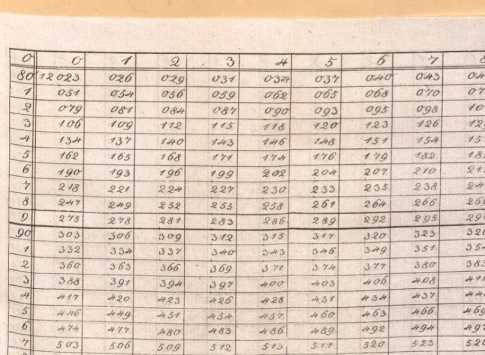 0 0 1 2 3 4 5 6 7
80 12023 026 029 031 034 037 040 043
1 051 054 056 059 062 065 068 070
2 079 081 084 087 090 093 095 098
3 106 109 112 115 118 120 123 126
4 134 137 140 143 146 148 151 154
5 162 165 168 171 174 176 179 182
6 190 193 196 199 202 204 207 210
7 218 221 224 227 230 233 235 238
8 247 249 252 255 258 261 264 266
9 275 278 281 283 286 289 292 295
90 303 306 309 312 315 317 320 323
1 332 334 337 340 343 346 349 351
2 360 363 366 369 371 374 377 380
3 388 391 394 397 400 403 406 408
4 417 420 423 426 428 431 434 437
5 446 449 451 454 457 460 463 466
6 474 477 480 483 486 489 492 494
7 503 506 509 512 515 517 520 523